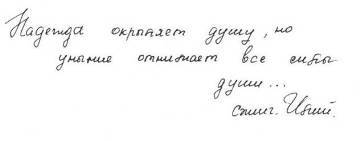 Надежда окрыляет душу, но
уныние отнимает все силы
души...
схииг. Илий.